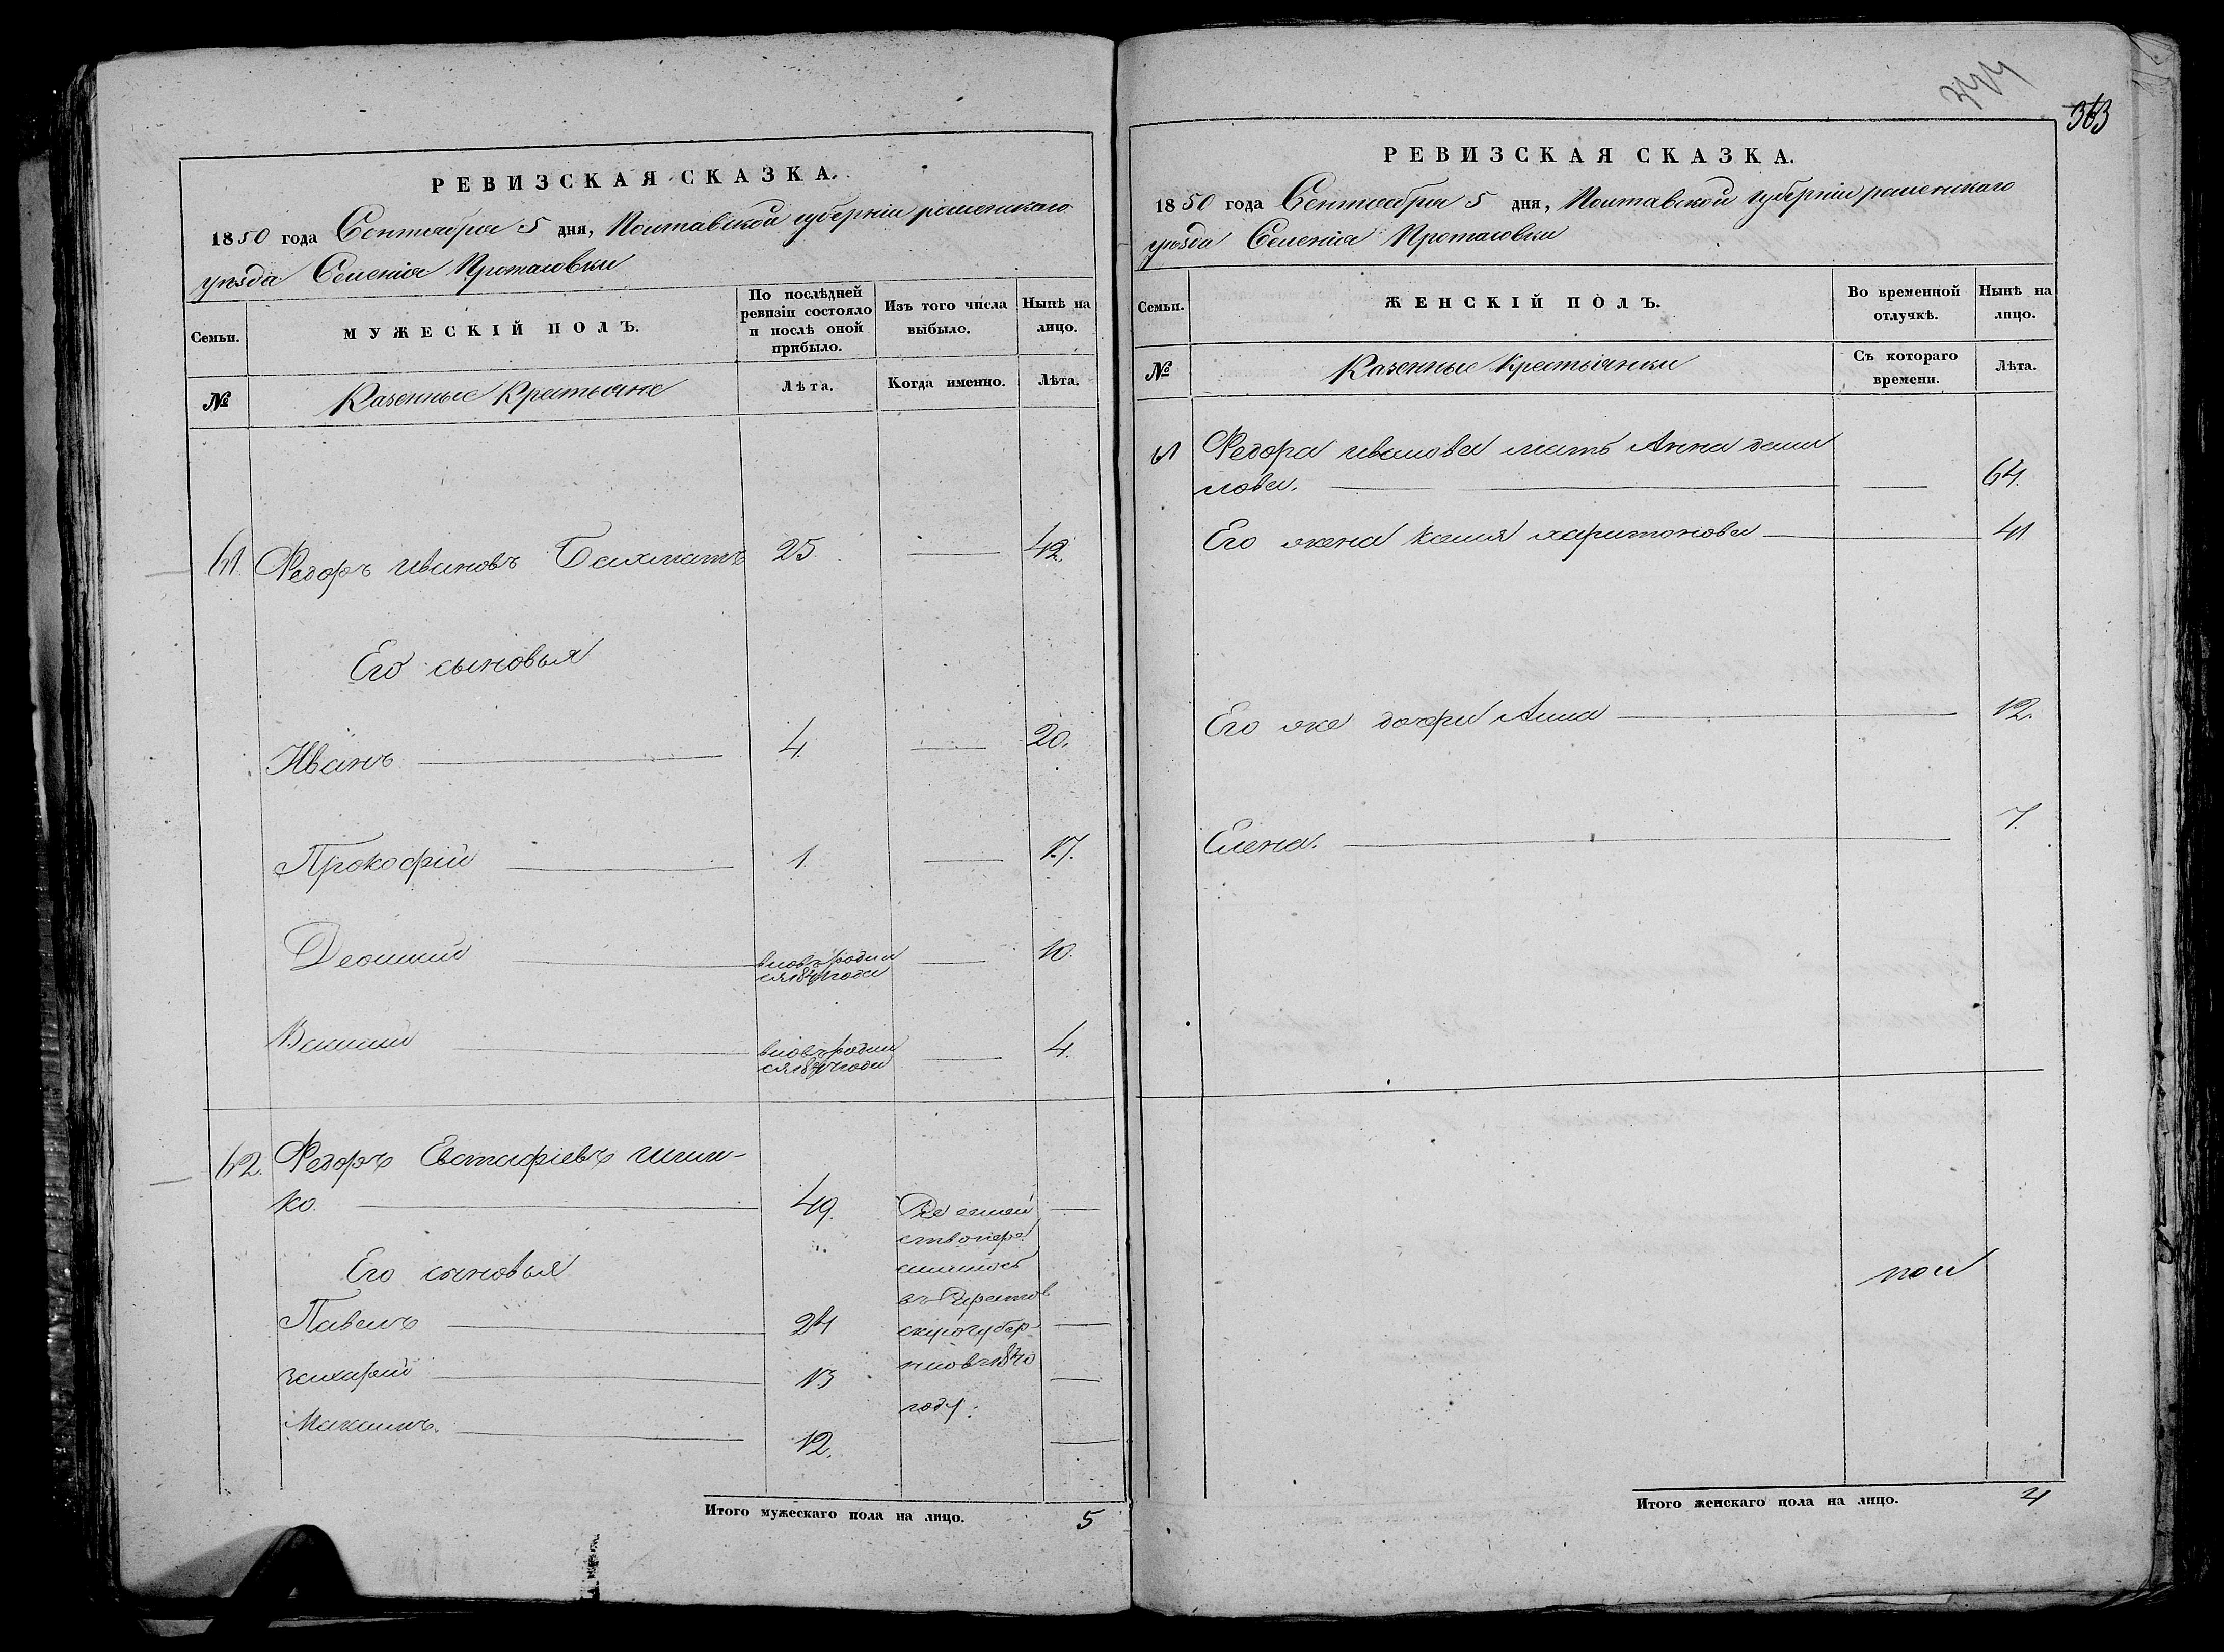 РЕВИЗСКАЯ СКАЗКА.
1850 года Сентября 5 дня, Полтавской губерніи роменскаго
уѣзда Селенія Протасовки
Семьи.
МУЖЕСКІЙ ПОЛЪ.
По послѣдней
ревизіи состояло
и послѣ оной
прибыло.
Изъ того числа
выбыло.
Нынѣ на
лицо.
№
Казенные Крестьяне
Лѣта.
Когда именно.
Лѣта.
61. Федоръ Ивановъ Бахматъ 25 42.
Его сыновья
Иванъ 4. 20.
Прокофій 1. 17.
Леонтий 10.
вновь родил
ся года
Василий 4.
вновь родил
ся года
62. Федоръ Евстафіевъ
ко. 49.
Его сыновья
Павелъ 24
Захарій 13
Максимъ. 12.
семей
ство пере
селилось
въ
скую губер
нию в 1840
году.
Итого мужескаго пола на лицо. 5
363
РЕВИЗСКАЯ СКАЗКА.
1850 года Сентября 5 дня, Полтавской губерніи роменскаго
уѣзда Селенія Протасовки
Семьи.
ЖЕНСКІЙ ПОЛЪ.
Во временной
отлучкѣ.
Нынѣ на
лицо.
№
Казенные Крестьянки
Съ котораго
времени.
Лѣта.
61 Федора иванова мать Анна дани
лова. 64.
Его жена харитонова 41
Его же дочери Анна 12.
Елена. 7.
Итого женскаго пола на лицо. 4